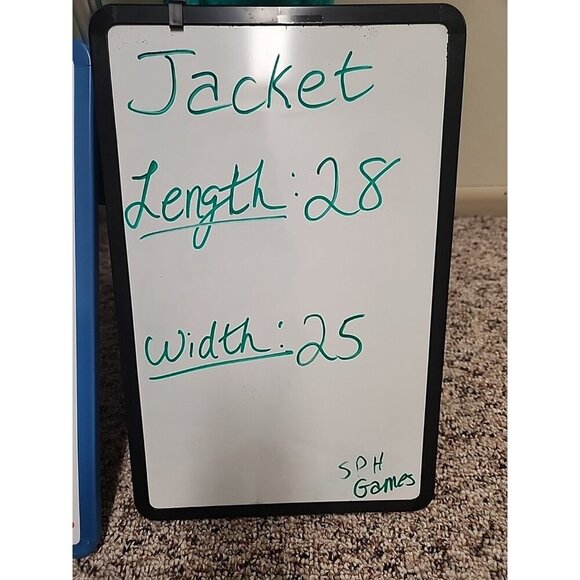 Jacket
Length: 28
Width: 25
SDH
Games